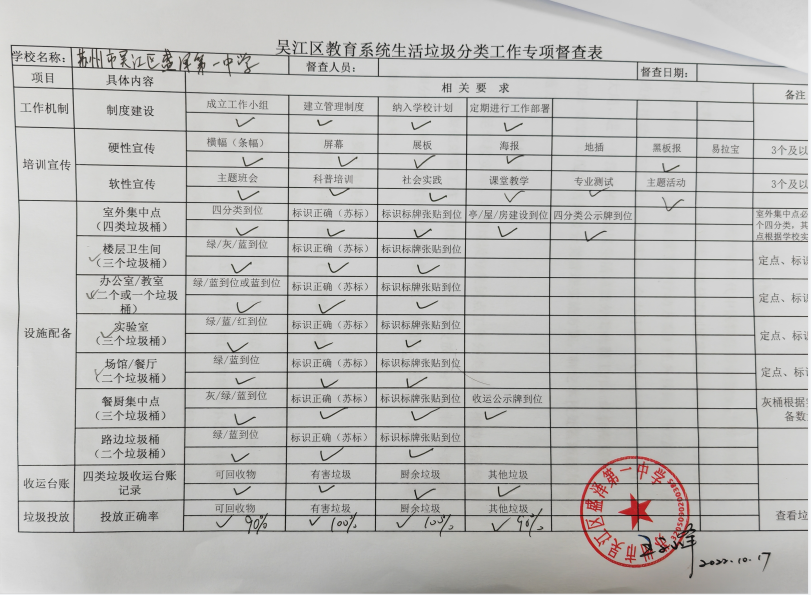 吴江区教育系统生活垃圾分类工作专项督查表
学校名称： 苏州市吴江区盛泽第一中学 督查人员： 督查日期：
项目 具体内容 相关要求 备注
工作机制 制度建设 成立工作小组 建立管理制度 纳入学校计划 定期进行工作部署
✓ ✓ ✓ ✓
培训宣传 硬性宣传 横幅（条幅） 屏幕 展板 海报 地插 黑板报 易拉宝 3个及以
✓ ✓ ✓ ✓ ✓
软性宣传 主题班会 科普培训 社会实践 课堂教学 专业测试 主题活动 3个及以
✓ ✓ ✓ ✓ ✓ ✓
设施配备 室外集中点 四分类到位 标识正确（苏标） 标识标牌张贴到位 亭/屋/房建设到位 四分类公示牌到位 室外集中点必
（四类垃圾桶） ✓ ✓ ✓ ✓ ✓ 个四分类，其
点根据学校实
楼层卫生间 绿/灰/蓝到位 标识正确（苏标） 标识标牌张贴到位 定点、标识
✓（三个垃圾桶） ✓ ✓ ✓
办公室/教室 绿/蓝到位或蓝到位 标识正确（苏标） 标识标牌张贴到位 定点、标识
✓（二个或一个垃圾
桶） ✓ ✓ ✓
实验室 绿/蓝/红到位 标识正确（苏标） 标识标牌张贴到位 定点、标识
✓（三个垃圾桶） ✓ ✓ ✓
场馆/餐厅 绿/蓝到位 标识正确（苏标） 标识标牌张贴到位 定点、标识
✓（二个垃圾桶） ✓ ✓ ✓
餐厨集中点 灰/绿/蓝到位 标识正确（苏标） 标识标牌张贴到位 收运公示牌到位 灰桶根据
（三个垃圾桶） ✓ ✓ ✓ ✓ 备数
路边垃圾桶 绿/蓝到位 标识正确（苏标） 标识标牌张贴到位
（二个垃圾桶） ✓ ✓ ✓
收运台账 四类垃圾收运台账 可回收物 有害垃圾 厨余垃圾 其他垃圾
记录 ✓ ✓ ✓ ✓
垃圾投放 投放正确率 可回收物 有害垃圾 厨余垃圾 其他垃圾 查看垃
✓ 90% ✓ 100% ✓ 100% ✓ 90%
苏州市吴江区盛泽第一中学
2022.10.17